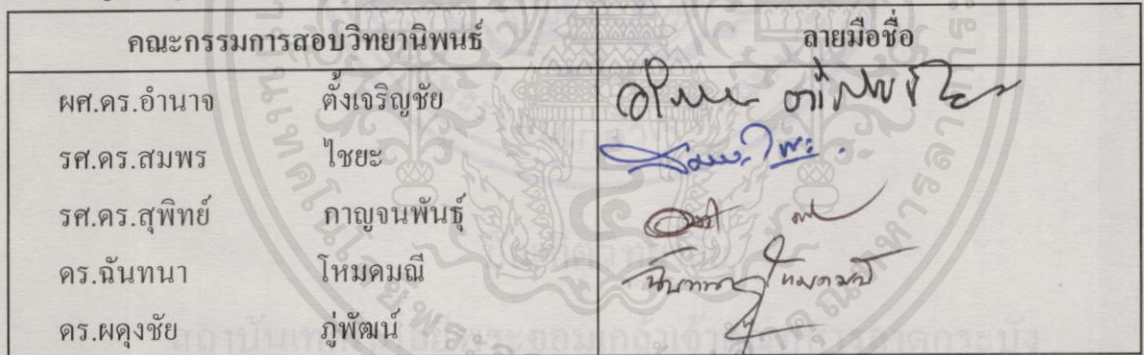 คณะกรรมการสอบวิทยานิพนธ์ ลายมือชื่อ
ผศ.ดร.อำนาจ ตั้งเจริญชัย
รศ.ดร.สมพร ไชยะ
รศ.ดร.สุพิทย์ กาญจนพันธุ์
ดร.ฉันทนา โหมดมณี
ดร.ผดุงชัย ภู่พัฒน์